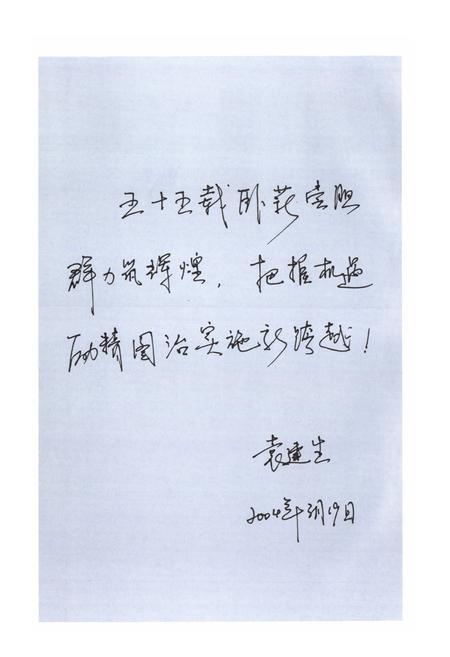 五十五载卧薪尝胆
群力筑辉煌，把握机遇
励精图治实施新跨越！
袁建生
2004年3月19日